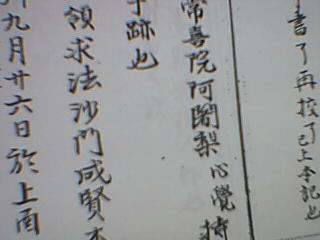 書了再挍了已上本記也
常喜院阿闍梨心覺持
跡也
領求法沙門咸賢本
九月廿六日於上酉